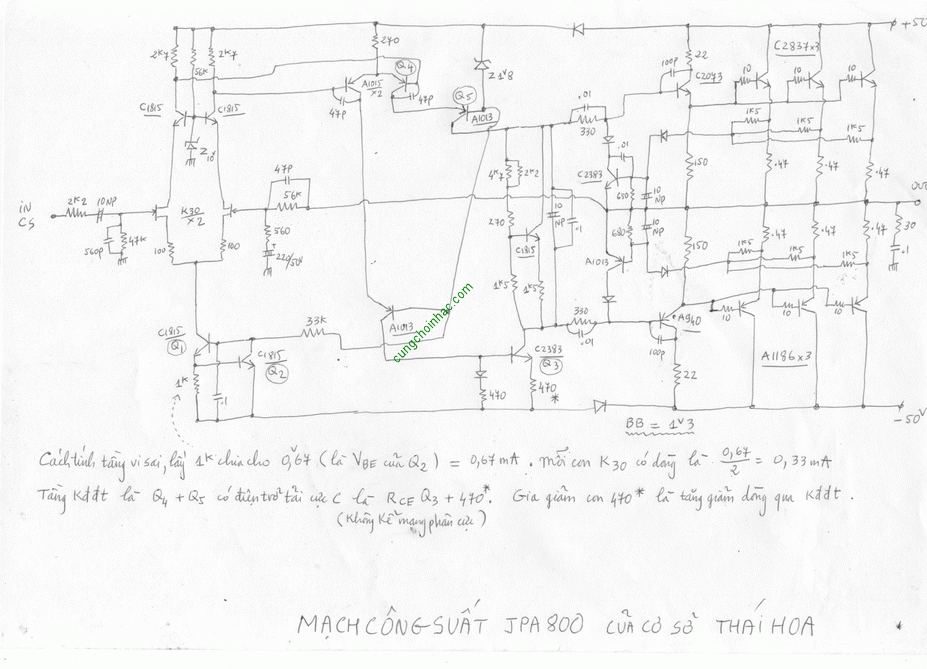 +50
2K7
56K
2K7
270
Q4
A1015
x2
47P
47P
Z 1V8
Q5
A1013
22
100P
C2073
C2837x3
10
10
10
C1815
C1815
Z 10V
.01
330
1K5
1K5
1K5
C2383
.01
680
10
NP
150
.47
.47
.47
4K7
2K2
47P
56K
iN
CS
2K2
10NP
K30
x2
560P
47K
100
100
560
220/50V
270
C1815
10
NP
.1
680
10
NP
150
.47
.47
.47
30
.1
OUT
A1013
1K5
1K5
1K5
1K5
1K5
33K
A1013
cungchoinhac.com
330
.01
A940
100P
10
10
10
C1815
Q1
C1815
Q2
1K
.1
C2383
Q3
470
470
*
22
A1186x3
-50V
BB = 1V3
Cách tính tầng vi sai, lấy 1K chia cho 0V,67 (là VBE của Q2) = 0,67mA. mỗi con K30 có dòng là 0,67/2 = 0,33mA
Tầng Kđđt là Q4 + Q5 có điện trở tải cực C là RCE Q3 + 470*. Gia giảm con 470* là tăng giảm dòng qua Kđđt.
(Không kể mạng phân cực)
MẠCH CÔNG SUẤT JPA800 CỦA CƠ SỞ THÁI HOA